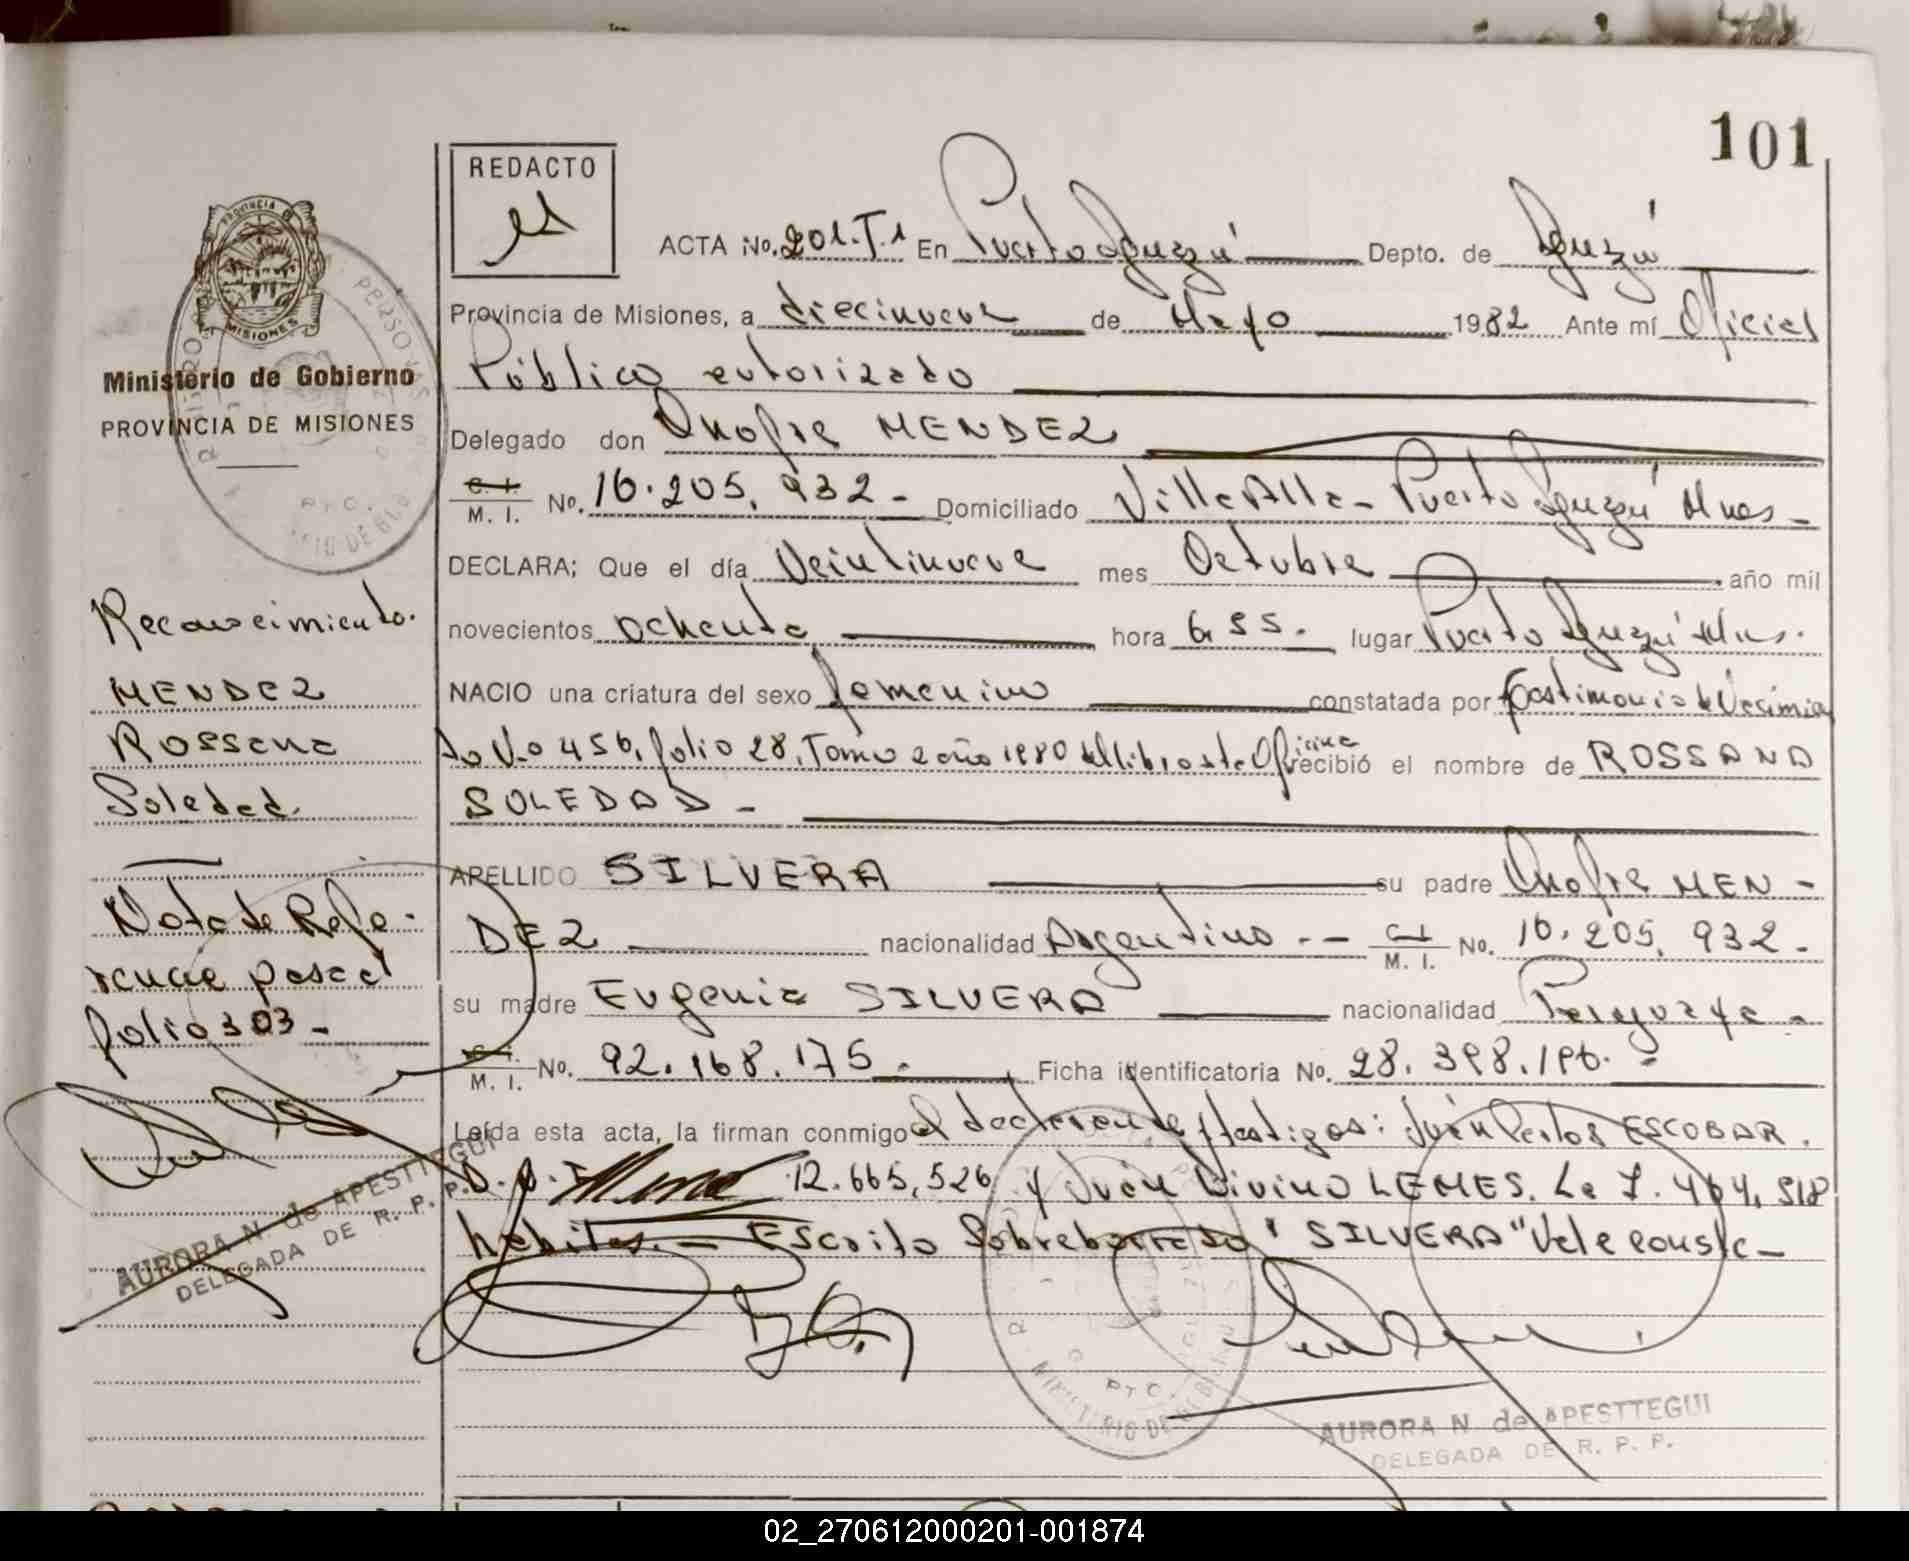 101
REDACTO
ACTA No. 201.T.1 En Puerto Iguazú Depto. de Iguazú
Provincia de Misiones, a diecinueve de Mayo 1982 Ante mí Oficial
Público autorizado
Delegado don Onofre MENDEZ
C. I. M. I. No. 16.205.932 - Domiciliado Villa Alta - Puerto Iguazú Mnes -
DECLARA; Que el día Veintinueve mes Octubre año mil
novecientos ochenta hora 6,55. lugar Puerto Iguazú Mns.
NACIO una criatura del sexo femenino constatada por testimonio de
do No 456, folio 28, Tomo 2 año 1980 del libro de Oficina recibió el nombre de ROSSANA
SOLEDAD -
APELLIDO SILVERA su padre Onofre MEN -
DEZ nacionalidad Argentino - - C I M. I. No. 16.205.932 -
su madre Eugenia SILVERA nacionalidad Paraguaya -
C. I. M. I. No. 92.168.175 - Ficha identificatoria No. 28.398.196. -
Leída esta acta, la firman conmigo el declarante y testigos: Juán Carlos ESCOBAR.
D. N. I. 12.665,526 y Juán Divino LEMES. Le 7.464,518
habiles. - Escrito Sobreborrado "SILVERA" Vale consta -
AURORA N. de APESTTEGUI
DELEGADA DE R. P. P.
PROVINCIA D
MISIONES
Ministerio de Gobierno
PROVINCIA DE MISIONES
Reconocimiento.
MENDEZ
Rossana
Soledad.
Nota de Refe -
rencia pasa al
folio 303 -
AURORA N. de APESTTEGUI
DELEGADA DE R. P. P.
02_270612000201-001874